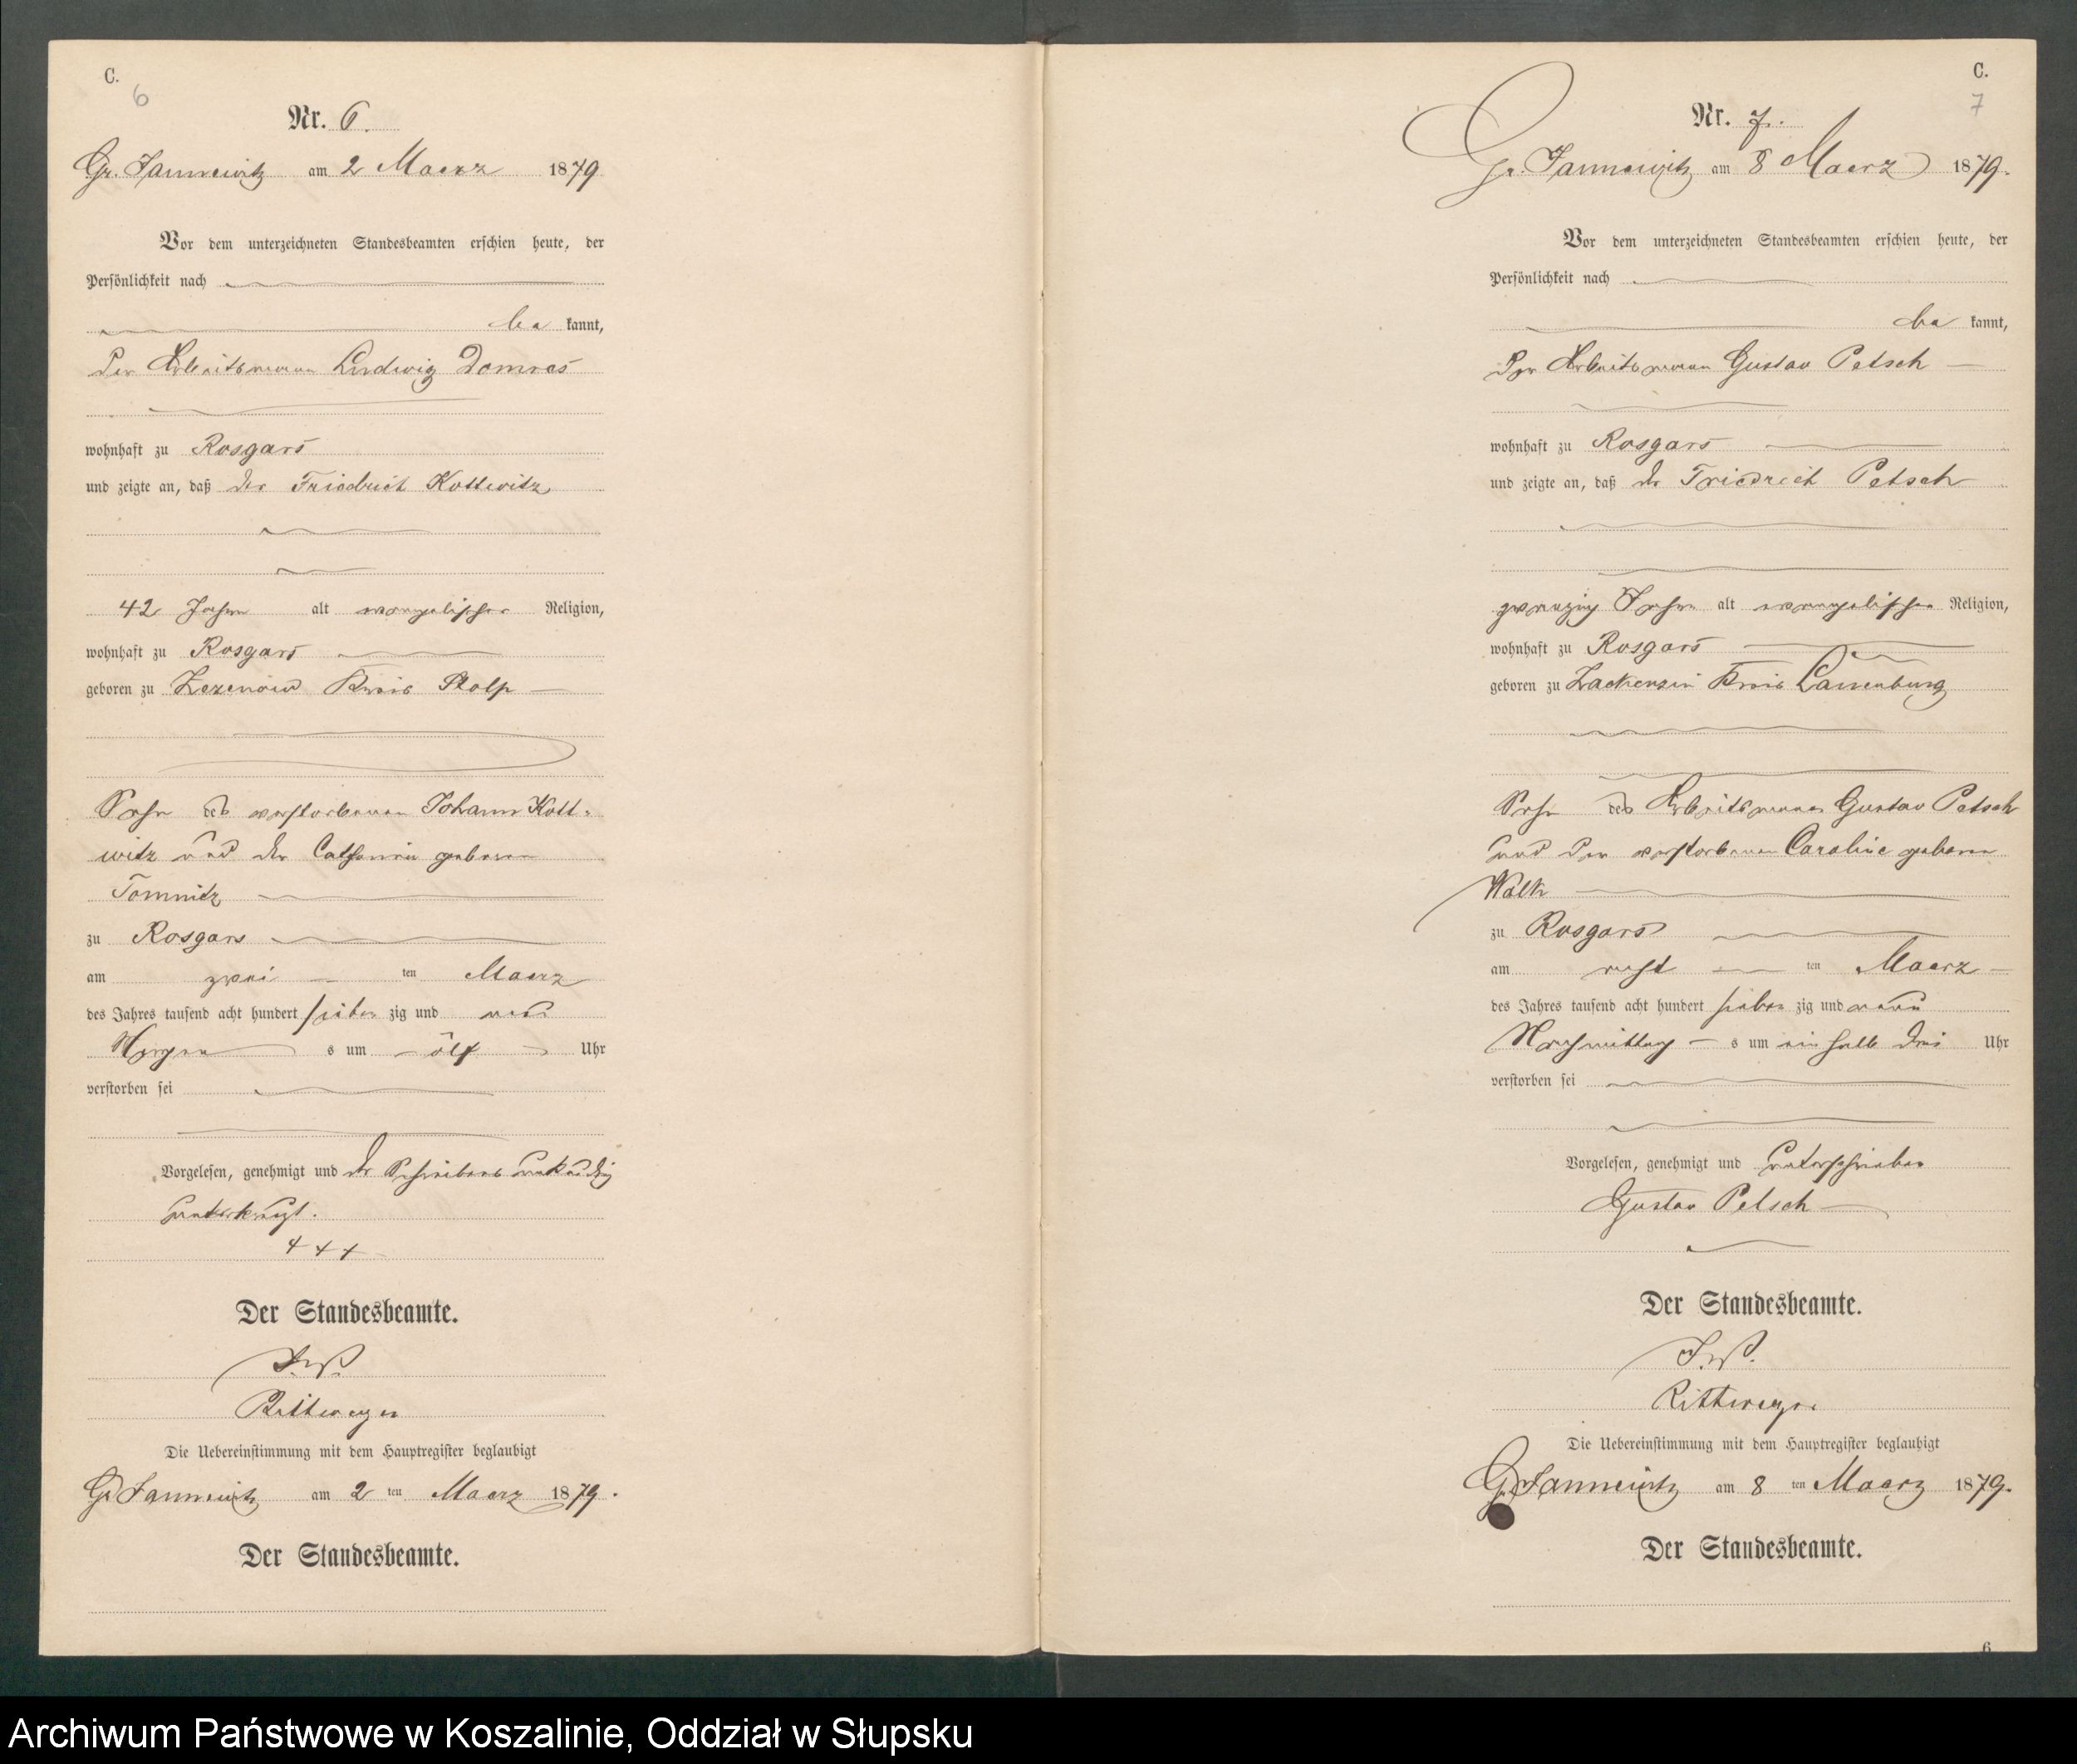 C.
6
Nr. 6.
Gr. Jannewitz am 2 Maerz 1879
Vor dem unterzeichneten Standesbeamten erschien heute, der
Persönlichkeit nach
be kannt,
der Arbeitsmann Ludwig Domres
wohnhaft zu Rosgars
und zeigte an, daß der Friedrich Kottwitz
42 Jahre alt evangelischer Religion,
wohnhaft zu Rosgars
geboren zu Zezenow Kreis Stolp
Sohn des verstorbenen Johann Kott-
witz und der Catharine geborene
Tomnitz
zu Rosgars
am zwei ten Maerz
des Jahres tausend acht hundert sieben zig und neun
Morgen s um ölf Uhr
verstorben sei
Vorgelesen, genehmigt und der Schreibens unkundig
unterkreuzt.
+++
Der Standesbeamte.
I. V.
Rittweger
Die Uebereinstimmung mit dem Hauptregister beglaubigt
Gr Jannewitz am 2 ten Maerz 1879.
Der Standesbeamte.
C.
7
Nr. 7.
Gr. Jannewitz am 8 Maerz 1879.
Vor dem unterzeichneten Standesbeamten erschien heute, der
Persönlichkeit nach
be kannt,
der Arbeitsmann Gustav Petsch
wohnhaft zu Rosgars
und zeigte an, daß der Friedrich Petsch
zwanzig Jahre alt evangelischer Religion,
wohnhaft zu Rosgars
geboren zu Zackenzin Kreis Lauenburg
Sohn des Arbeitsmann Gustav Petsch
und der verstorbenen Caroline geborene
Wolk
zu Rosgars
am acht ten Maerz
des Jahres tausend acht hundert sieben zig und neun
Nachmittag s um ein halb drei Uhr
verstorben sei
Vorgelesen, genehmigt und unterschrieben
Gustav Petsch
Der Standesbeamte.
I. V.
Rittweger
Die Uebereinstimmung mit dem Hauptregister beglaubigt
Gr Jannewitz am 8 ten Maerz 1879.
Der Standesbeamte.
6
Archiwum Państwowe w Koszalinie, Oddział w Słupsku